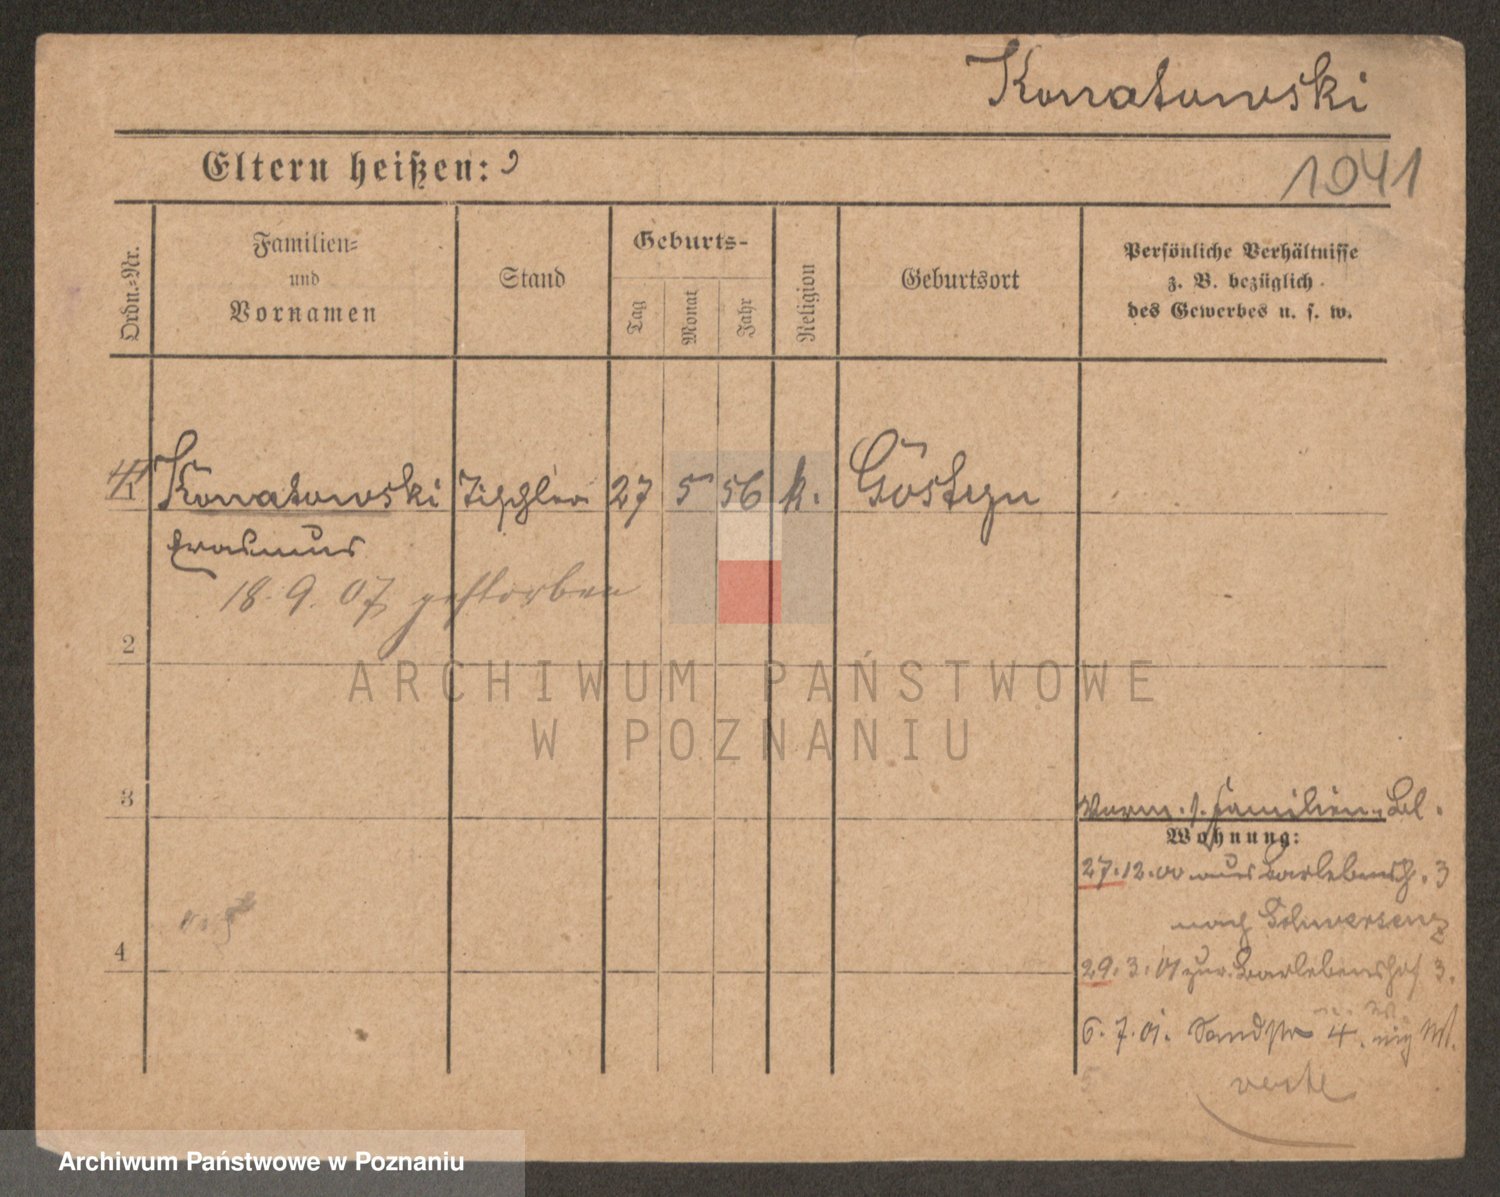 Konatowski
Eltern heißen:
1941
Ordn.-Nr.
Familien-
und
Vornamen
Stand
Geburts-
Tag
Monat
Jahr
Religion
Geburtsort
Persönliche Verhältnisse
z. B. bezüglich
des Gewerbes u. s. w.
1 Konatowski Tischler 27 5 56 k. Gostyn
Erasmus
18.9.07 gestorben
2
ARCHIWUM PAŃSTWOWE
W POZNANIU
3
Vorm. s. Familien-Bl.
Wohnung:
27.12.00 aus Barlebensh. 3
nach Schwersenz
4
29.3.01 zur. Barlebenshof 3.
6.7.01. Sandstr 4.
verte
Archiwum Państwowe w Poznaniu